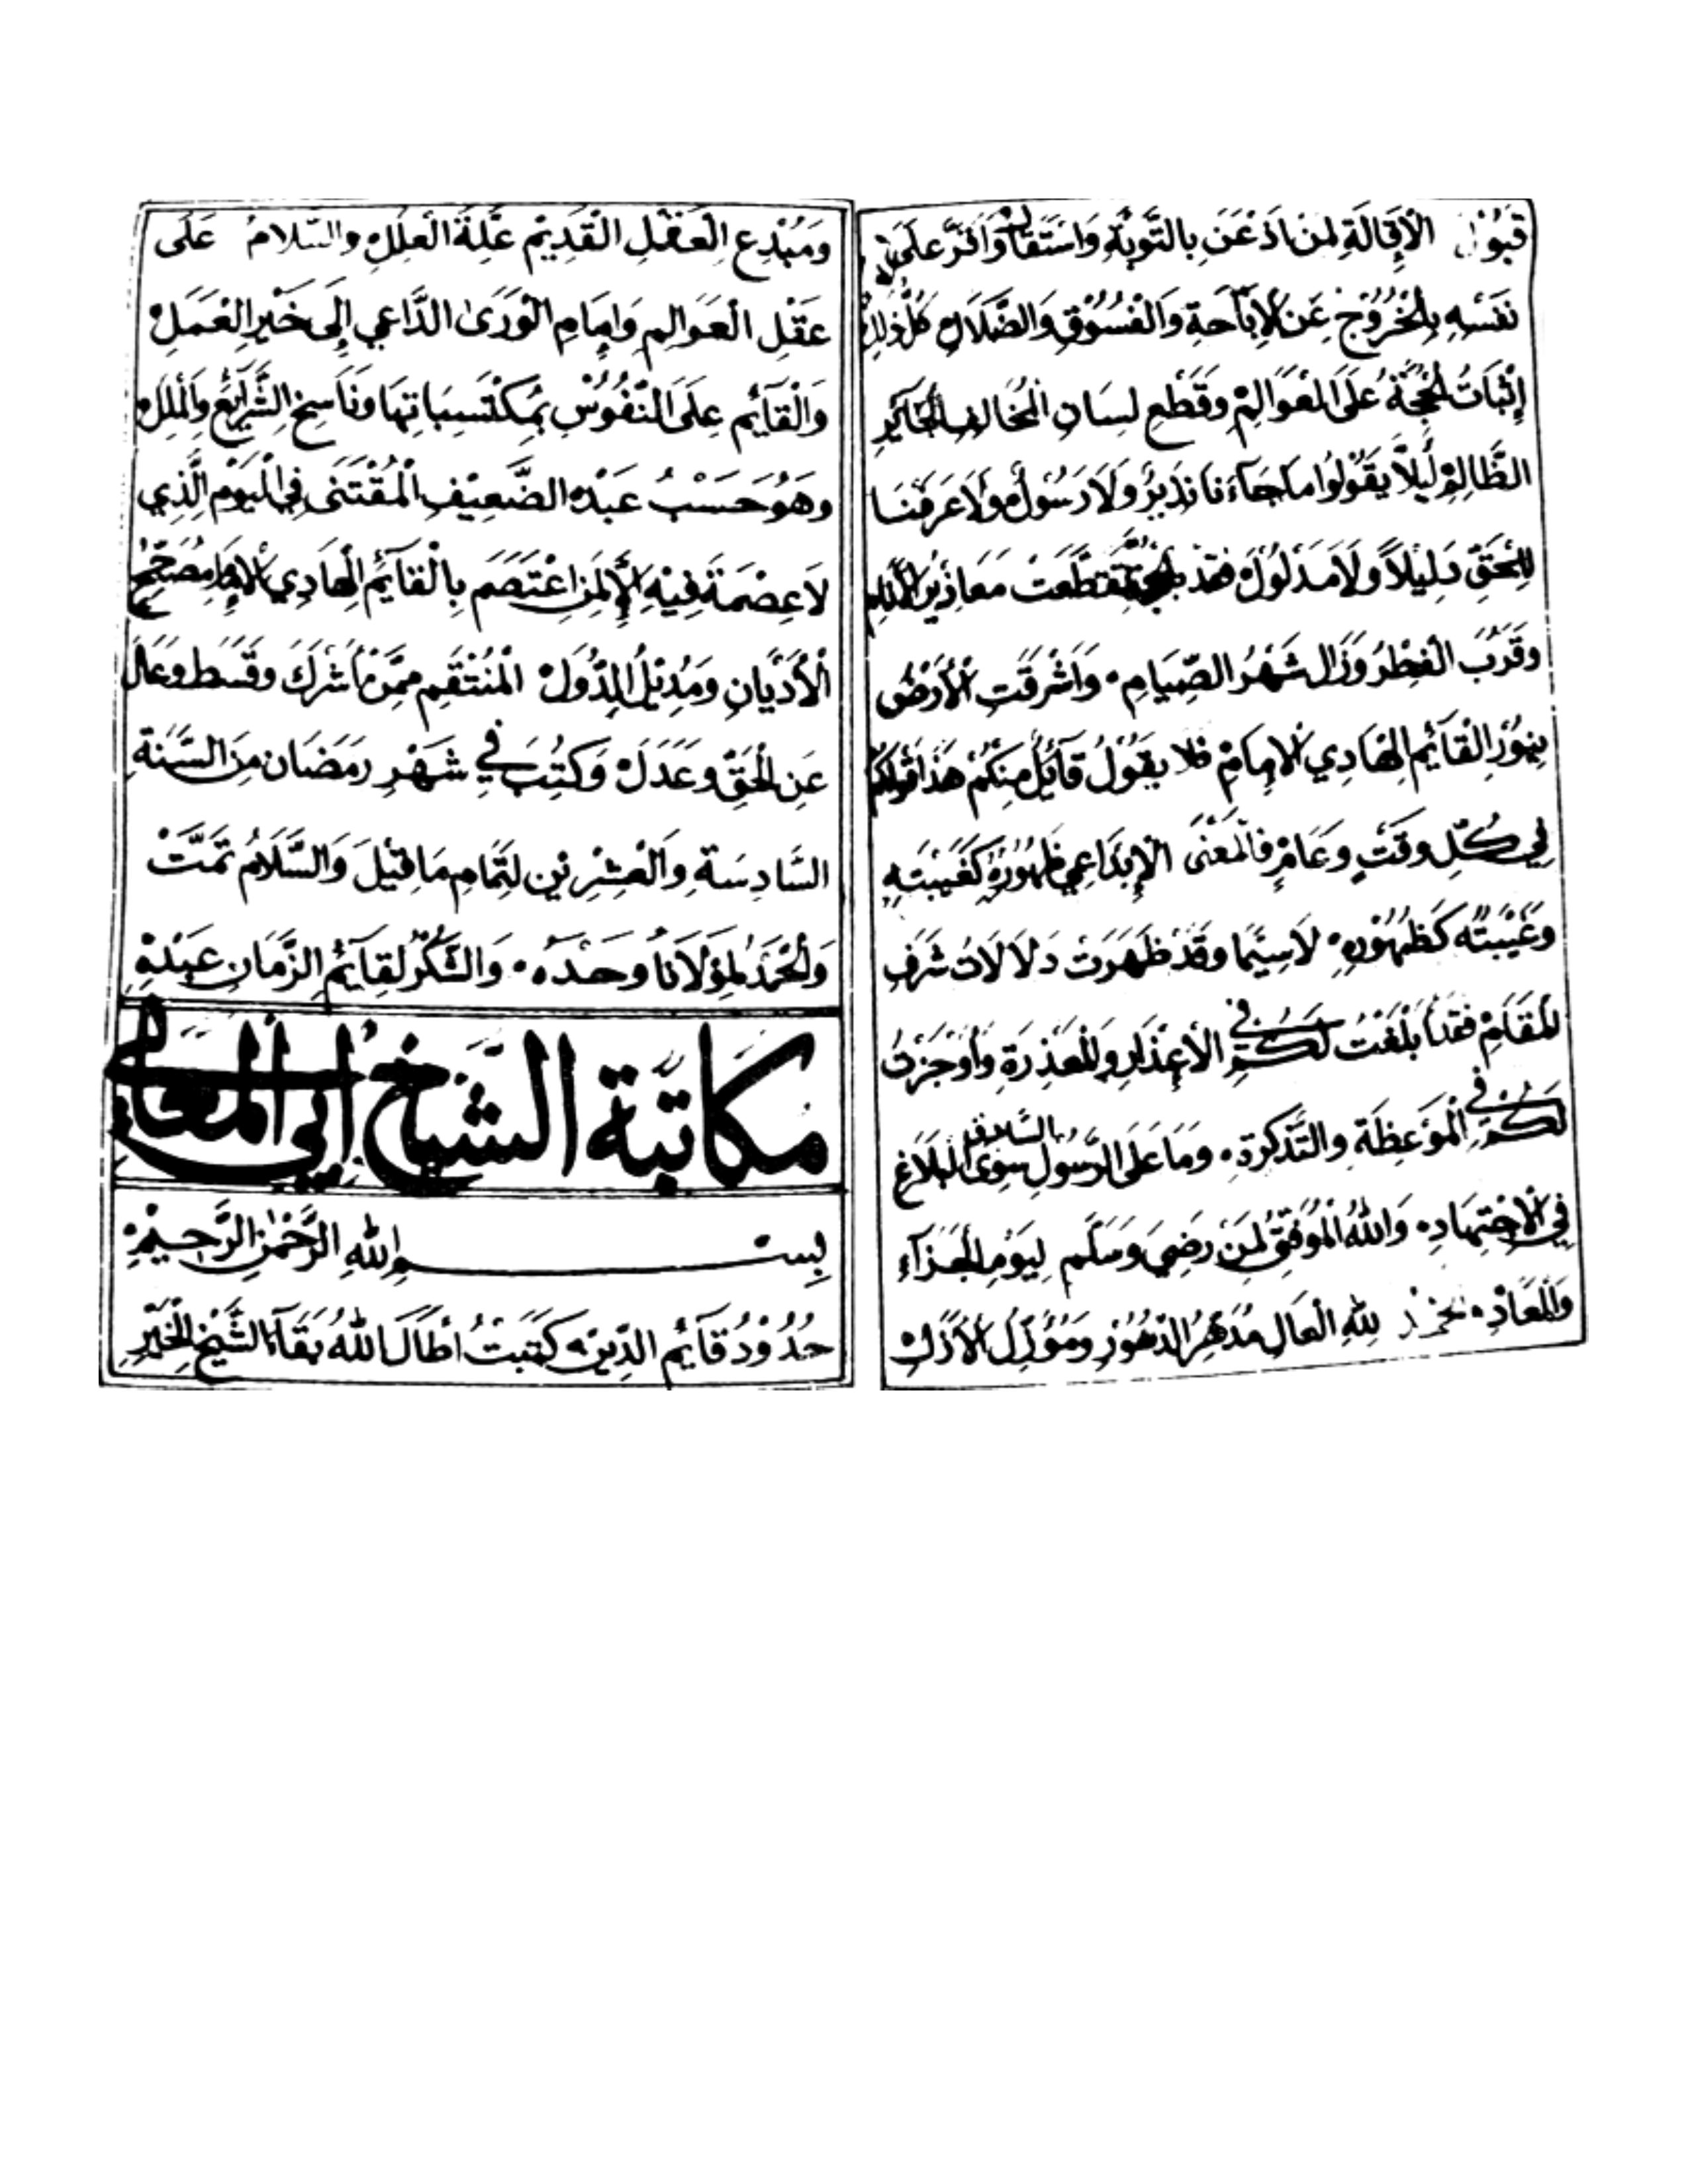 قَبُول الْإِقَالَةِ لِمَن اَذْعَنَ بِالتَّوْبَةِ وَاسْتَقَالَ وَاَقَرَّ عَلَى
نَفْسِهِ بِالْخُرُوْجِ عَنِ الْإِبَاحَةِ وَالْفُسُوْقِ وَالضَّلَالِ كُلُّ ذَلِكَ
إِثْبَاتُ الْحُجَّةِ عَلَى الْعَوَالِمْ وَقَطْعِ لِسَانِ الْمُخَالِفِ الْجَائِرِ
الظَّالِمْ لَيِلَّا يَقُوْلُوا مَا جَآءَنَا نَذِيْرٌ وَلَا رَسُوْلْ وَلَا عَرَفْنَا
لِلْحَقِّ دَلِيْلًا وَلَا مَدْلُوْلْ فَقَدْ تَقَطَّعَتْ مَعَاذِيْرُ الْأَنَامِ
وَقَرُبَ الْفِطْرُ وَزَال شَهْرُ الصِّيَامِ ۰ وَاَشْرَقَتِ الْأَرْضُ
بِنُوْرِ الْقَآئِمِ الْهَادِي الْإِمَامْ فَلَا يَقُوْلُ قَآئِلٌ مِنْكُمْ هَذَا قَوْلُكُمْ
فِي كُلِّ وَقْتٍ وَعَامْ فَالْمَعْنَى الْإِبْدَاعِي ظُهُوْرُهُ كَغَيْبَتِهِ
وَغَيْبَتُه كَظُهُوْرِهِ ۰ لَا سِيَّمَا وَقَدْ ظَهَرَتْ دَلَالَاتُ شَرَفِ
الْمَقَامْ فَقَد اَبْلَغْتُ لَكُمْ فِي الْأَعْذَارِ وَالْمَعْذِرَةِ وَاَوْجَزْتُ
لَكُمْ فِي الْمَوْعِظَةِ وَالتَّذْكِرَةِ ۰ وَمَا عَلَى الرَّسُولِ سِوَى الْبَلَاغ
فِي الْاِجْتِهَادِ ۰ وَاللهُ الْمُوَفِّقُ لِمَنْ رَضِيَ وَسَلَّم لِيَوْمِ الْجَزَآءِ
وَالْمَعَادِ ۰ لِلهِ الْعَالِ مُدَهِّرُ الدُّهُوْرِ وَمُؤَزِّلُ الْأَزَلْ
وَمُبْدِعِ الْعَقْلِ الْقَدِيْمِ عِلَّةِ الْعِلَلِ وَالسَّلَامُ عَلَى
عَقْلِ الْعَوَالِمِ وَاِمَامِ الْوَرَىٰ الدَّاعِي إِلَى خَيْرِ الْعَمَلْ
وَالْقَآئِمِ عَلَى النُّفُوْسِ بِمُكْتَسِبَاتِهَا وَنَاسِخِ الشَّرَايِعِ وَالْمِلَلْ
وَهُوَ حَسْبُ عَبْدِهِ الضَّعِيْفِ الْمُقْتَنَى فِي الْيَوْمِ الَّذِي
لَا عِصْمَةَ فِيْهِ إِلَّا لِمَنِ اعْتَصَمَ بِالْقَآئِمِ الْهَادِي الْإِمَامِ مُصَحِّحُ
الْأَدْيَانِ وَمُدِيْلُ الدُّوَلْ الْمُنْتَقِمِ مِمَّنْ اَشْرَكَ وَقَسَطَ وَعَالَ
عَنِ الْحَقِّ وَعَدَلْ وَكُتِبَ فِي شَهْرِ رَمَضَان مِنَ السَّنَةِ
السَّادِسَةِ وَالْعِشْرِيْنِ لِتَمَامِ مَا قِيْلَ وَالسَّلَامُ تَمَّتْ
وَالْحَمْدُ لِمَوْلَانَا وَحْدَهُ ۰ وَالشُّكْرُ لِقَآئِمِ الزَّمَانِ عَبْدِهِ
مكاتبة الشَّيخ أبي المعالي
بِسْمِ اللهِ الرَّحْمٰنِ الرَّحِيْمِ
حُدُوْدُ قَآئِمِ الدِّيْنِ كَتَبْتُ اَطَالَ اللهُ بَقَآءَ الشَّيْخِ الْخَيِّرِ